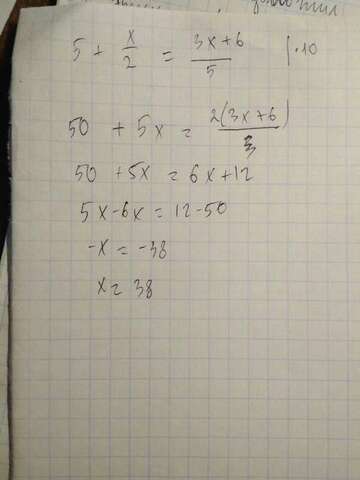 5 + x/2 = (3x+6)/5 |·10
50 + 5x = 2(3x+6)/3
50 + 5x = 6x+12
5x-6x = 12-50
-x = -38
x = 38